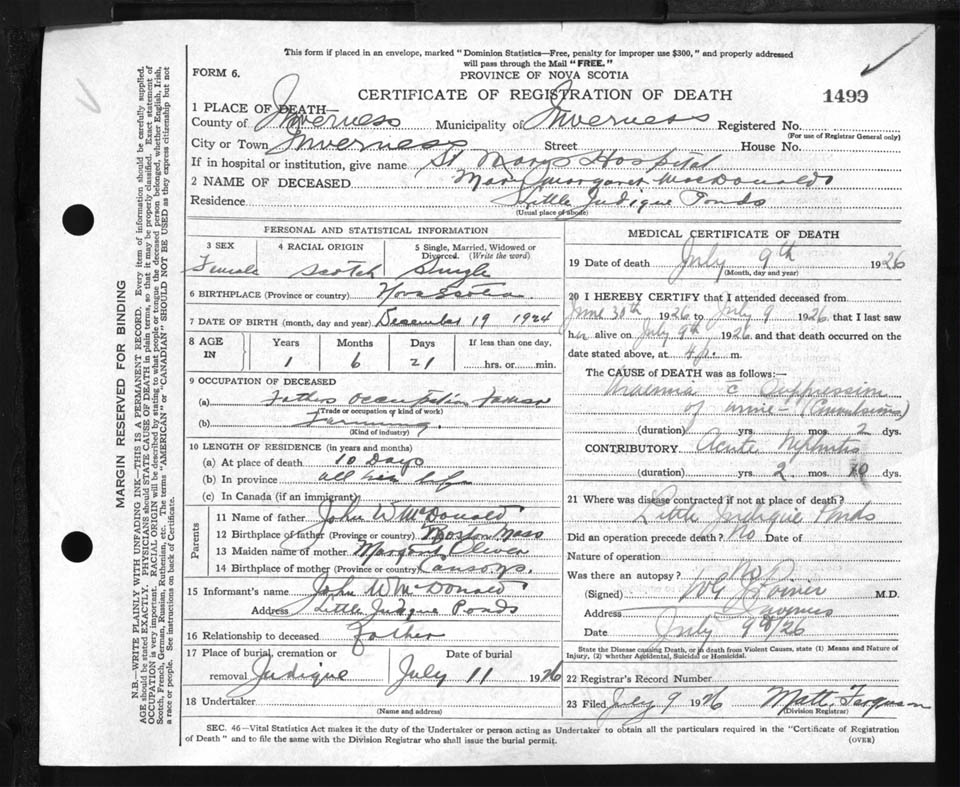 This form if placed in an envelope, marked "Dominion Statistics—Free, penalty for improper use $300," and properly addressed
will pass through the Mail "FREE."
FORM 6.
PROVINCE OF NOVA SCOTIA
CERTIFICATE OF REGISTRATION OF DEATH
1499
1 PLACE OF DEATH—
County of Inverness Municipality of Inverness Registered No.
(For use of Registrar General only)
City or Town Inverness Street House No.
If in hospital or institution, give name St Marys Hospital
2 NAME OF DECEASED Mary Margaret MacDonald
Residence Little Judique Ponds
(Usual place of abode)
MARGIN RESERVED FOR BINDING
N.B.—WRITE PLAINLY WITH UNFADING INK—THIS IS A PERMANENT RECORD. Every item of information should be carefully supplied.
AGE should be stated EXACTLY. PHYSICIANS should STATE CAUSE OF DEATH in plain terms, so that it may be properly classified. Exact statement of
OCCUPATION is very important. RACIAL ORIGIN will be described by stating to what people or tongue the deceased person belonged, whether English, Irish,
Scotch, French, German, Russian, Ruthenian, etc. The terms "AMERICAN" or "CANADIAN" SHOULD NOT BE USED as they express citizenship but not
a race or people. See instructions on back of Certificate.
PERSONAL AND STATISTICAL INFORMATION
3 SEX 4 RACIAL ORIGIN 5 Single, Married, Widowed or
Divorced. (Write the word)
Female Scotch Single
6 BIRTHPLACE (Province or country) Nova Scotia
7 DATE OF BIRTH (month, day and year) December 19 1924
8 AGE
IN
Years Months Days If less than one day,
1 6 21 hrs. or min.
9 OCCUPATION OF DECEASED
(a) Fathers occupation Farmer
(Trade or occupation or kind of work)
(b) Farming
(Kind of industry)
10 LENGTH OF RESIDENCE (in years and months)
(a) At place of death 10 Days
(b) In province all her life
(c) In Canada (if an immigrant)
Parents
11 Name of father John W McDonald
12 Birthplace of father (Province or country) Boston Mass
13 Maiden name of mother Margaret Oliver
14 Birthplace of mother (Province or country)
15 Informant's name John W McDonald
Address Little Judique Ponds
16 Relationship to deceased Father
17 Place of burial, cremation or Date of burial
removal Judique July 11 1926
18 Undertaker
(Name and address)
MEDICAL CERTIFICATE OF DEATH
19 Date of death July 9th 1926
(Month, day and year)
20 I HEREBY CERTIFY that I attended deceased from
June 30th 1926 to July 9 1926, that I last saw
her alive on July 9th 1926 and that death occurred on the
date stated above, at 4 p. m.
The CAUSE of DEATH was as follows:—
Uraemia c̄ Suppression
of urine — (Convulsions)
(duration) yrs. mos. 2 dys.
CONTRIBUTORY Acute Nephritis
(duration) yrs. 2 mos. 10 dys.
21 Where was disease contracted if not at place of death?
Little Judique Ponds
Did an operation precede death? No Date of
Nature of operation
Was there an autopsy? No
(Signed) M.D.
Address Inverness
Date July 9th/26
State the Disease causing Death, or in death from Violent Causes, state (1) Means and Nature of
Injury, (2) whether Accidental, Suicidal or Homicidal.
22 Registrar's Record Number
23 Filed July 9 1926 Matt. Ferguson
(Division Registrar)
SEC. 46—Vital Statistics Act makes it the duty of the Undertaker or person acting as Undertaker to obtain all the particulars required in the "Certificate of Registration
of Death" and to file the same with the Division Registrar who shall issue the burial permit.
(OVER)